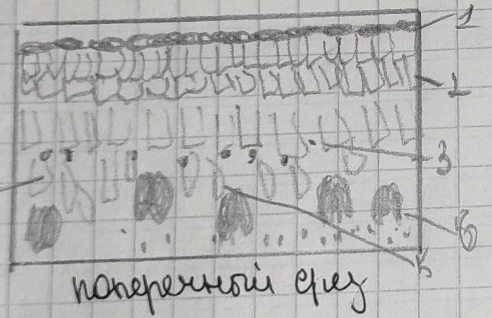 1
1
3
6
5
поперечный срез